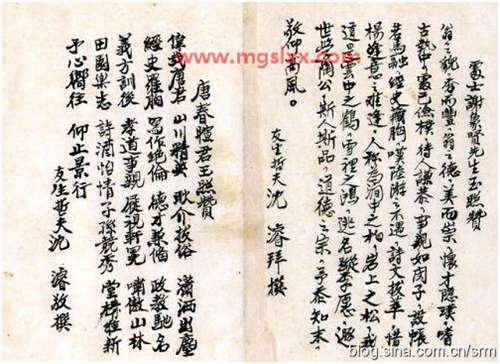 處士謝象賢先生玉照贊
翁之貌秀而豐,翁之德美而崇,懷才隱璞嗜
古熱中,處己儉樸,待人謙恭,事親如閔子,設帳
若馬融,經史藏胸,嘆陸游之不遇,詩文拔萃,惜
楊意之難逢,人稱為澗中之柏,岩上之松,我
道是雲中之鶴,雪裡之鴻,逃名
世此陶公,斯人斯品,道德之宗,予忝知末,
敬仰高風。
友生哲夫沈 濬拜撰
唐春禮君玉照贊
偉哉唐君 山川精英 耿介拔俗 瀟洒出塵
經史羅胸 寫作絕倫 德才兼備 政教馳名
義方訓後 孝道事親 展視新冕 嘯傲山林
田園樂志 詩酒怡情 子孫競秀 堂構維新
予心嚮往 仰止景行
友生哲夫沈 濬敬撰
www.mgslxx.com
blog.sina.com.cn/srm